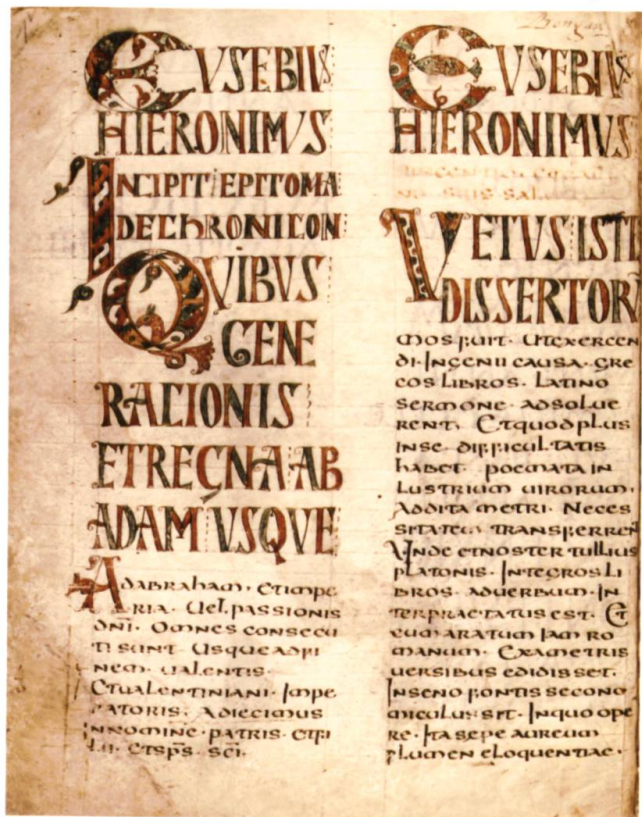 EVSEBIVS
HIERONIMVS
INCIPIT EPITOMA
DE CHRONICON
QVIBVS
GENE
RACIONIS
ET REGNA AB
ADAM VSQVE
AD ABRAHAM· ET IMPE
RIA· VEL PASSIONIS
DN̄I· OMNES CONSECU
TI SUNT USQUE AD FI
NEM· UALENTIS·
ET UALENTINIANI· IMPE
RATORIS· ADIECIMUS
IN NOMINE· PATRIS· ET FI
LII· ET SP̄S· SC̄I·
EVSEBIVS
HIERONIMVS
SUIS SAL
VETUS ISTE
DISSERTORV
MOS FUIT· UT EXERCEN
DI· INGENII CAUSA· GRE
COS LIBROS· LATINO
SERMONE· ADSOLUE
RENT· ET QUOD PLUS
IN SE DIFFICULTATIS
HABET· POEMATA IN
LUSTRIUM UIRORUM·
ADDITA METRI· NECES
SITATEM TRANSFERREN
UNDE ET NOSTER TULLIUS
PLATONIS· INTEGROS LI
BROS· AD UERBUM· IN
TERPRAETATUS EST· ET
CUM ARATUM IAM RO
MANUM· EXAMETRIS
UERSIBUS EDIDISSET·
IN SENOFONTIS SECONO
MICUL LUSIT· IN QUO OPE
RE· ITA SEPE AUREUM
FLUMEN ELOQUENTIAE·